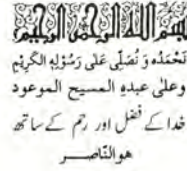 بسم الله الرحمن الرحيم
نَحْمَدُه وَ نُصَلِّی عَلٰی رَسُوْلِهِ الْکَرِیْمِ
وعلیٰ عبدهِ المسیح الموعود
خدا کے فضل اور رحم کے ساتھ
هوالنّاصر